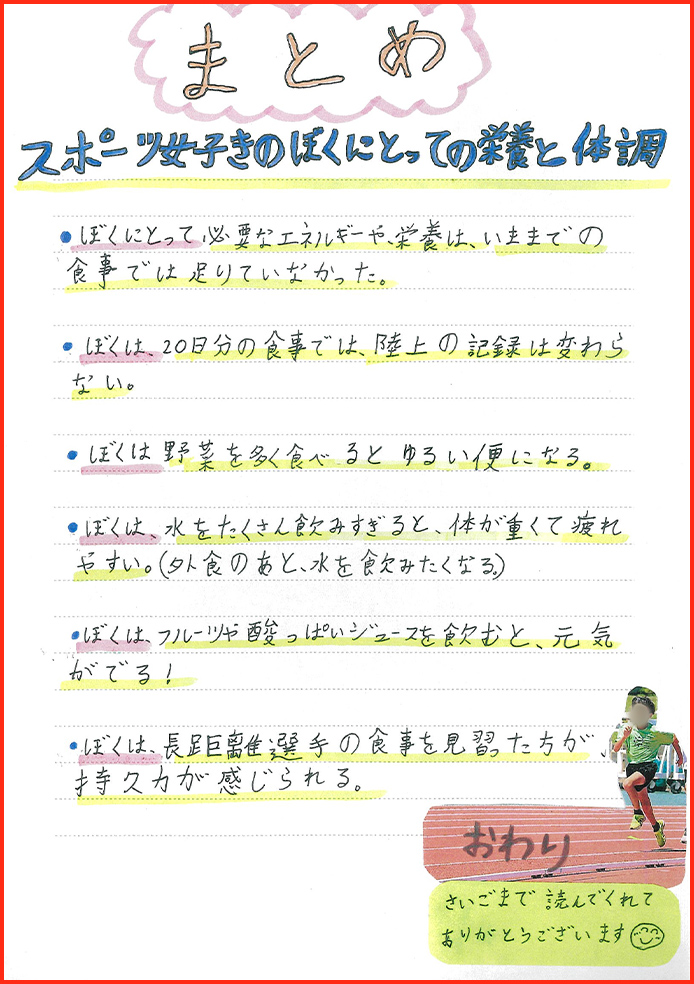 まとめ
スポーツ好きのぼくにとっての栄養と体調
●ぼくにとって必要なエネルギーや、栄養は、いままでの
食事では足りていなかった。
●ぼくは、20日分の食事では、陸上の記録は変わら
ない。
●ぼくは野菜を多く食べるとゆるい便になる。
●ぼくは、水をたくさん飲みすぎると、体が重くて疲れ
やすい。(外食のあと、水を飲みたくなる。)
●ぼくは、フルーツや酸っぱいジュースを飲むと、元気
がでる!
●ぼくは、長距離選手の食事を見習った方が、
持久力が感じられる。
おわり
さいごまで読んでくれて
ありがとうございます